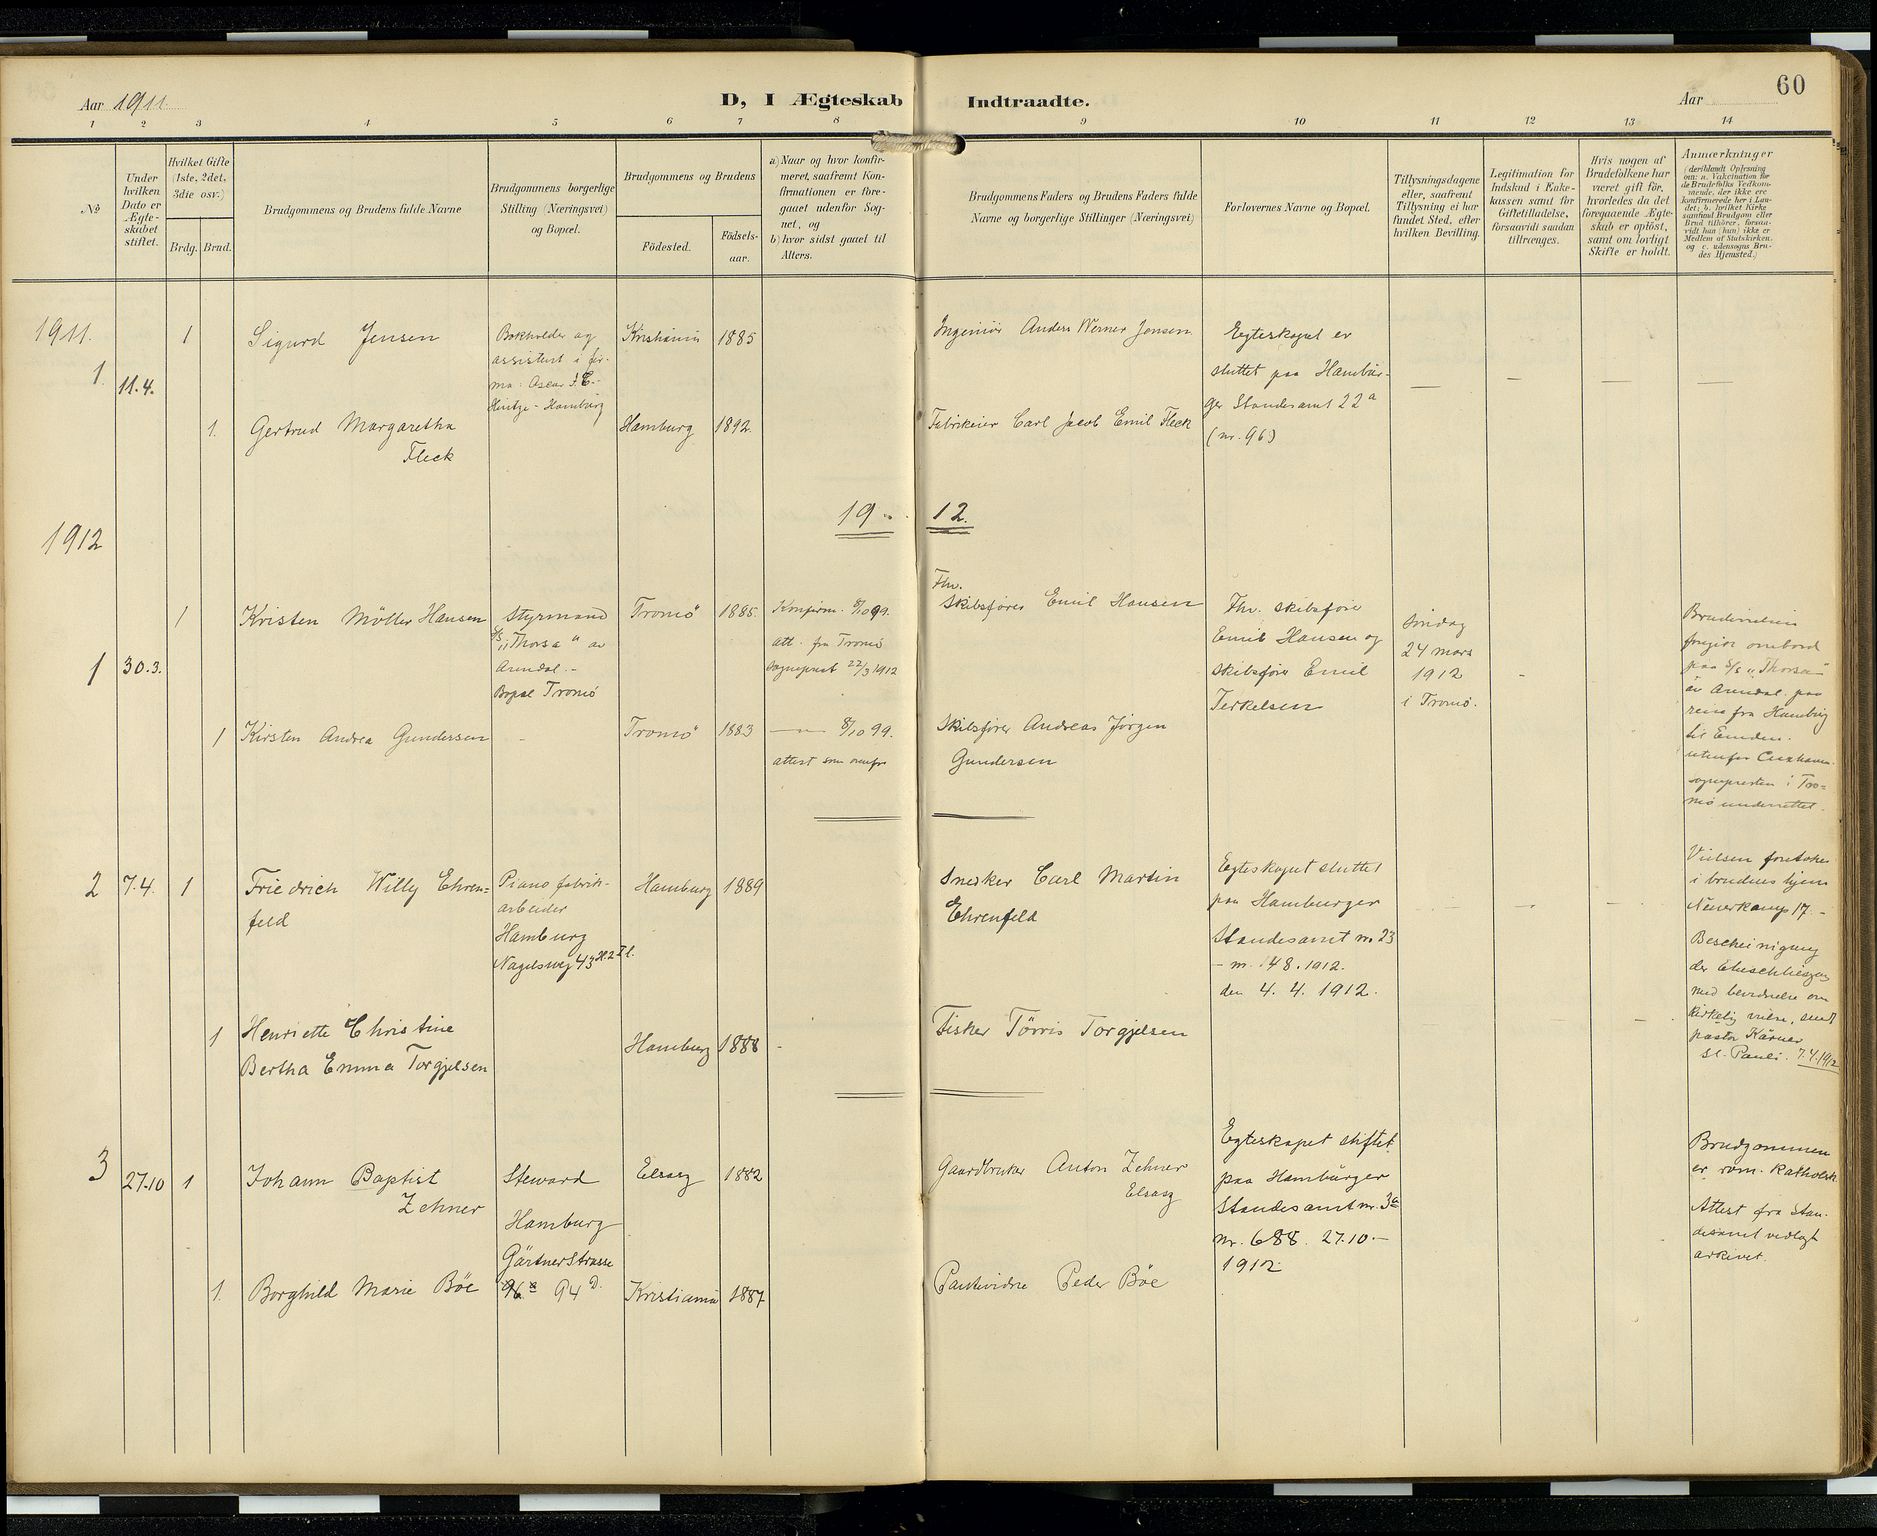 Aar 1911
D, I Ægteskab Indtraadte.
Aar
60
1 2 3 4 5 6 7 8 9 10 11 12 13 14
№
Under hvilken Dato er Ægte-skabet stiftet.
Hvilket Gifte (1ste, 2det, 3die osv.)
Brdg. Brud.
Brudgommens og Brudens fulde Navne
Brudgommens borgerlige Stilling (Næringsvei) og Bopæl.
Brudgommens og Brudens
Födested.
Födsels-aar.
a) Naar og hvor konfir-meret, saafremt Kon-firmationen er fore-gaaet udenfor Sog-net, og
b) hvor sidst gaaet til Alters.
Brudgommens Faders og Brudens Faders fulde Navne og borgerlige Stillinger (Næringsvei)
Forlovernes Navne og Bopæl.
Tillysningsdagene eller, saafremt Tillysning ei har fundet Sted, efter hvilken Bevilling.
Legitimation for Indskud i Enke-kassen samt for Giftetilladelse, forsaavidt saadan tiltrænges.
Hvis nogen af Brudefolkene har været gift för, hvorledes da det foregaaende Ægte-skab er oplöst, samt om lovligt Skifte er holdt.
Anmærkninger
(deriblandt Oplysning om: a. Vakcination for de Brudefolks Vedkom-mende, der ikke ere konfirmerede her i Lan-det; b. hvilket Kirke-samfund Brudgom eller Brud tilhörer, forsaa-vidt han (hun) ikke er Medlem af Statskirken, og c. udensogns Bru-des Hjemsted.)
1911.
1.
11.4.
1
Sigurd Jensen
Bokholder og
assistent i fir-
ma: Oscar
Hintze - Hamburg
Kristiania
1885
Ingeniör Anders Werner Jensen
Egteskapet er
sluttet paa Hambur-
ger Standesamt 22a
(nr. 96)
1.
Gertrud Margaretha
Fleck
Hamburg
1892.
Fabrikeier Carl Jacob Emil Fleck
19 - 12.
1912
1
30.3.
1
Kristen Möller Hansen
Styrmand
S/s "Thorsa" av
Arendal. -
Bopæl Tromö
Tromö
1885.
Konfirm. 8/10 99.
att. fra Tromö
sogneprest 22/3 1912
Fhv.
Skibsförer Emil Hansen
Fhv. skibsförer
Emil Hansen og
skibsförer Emil
Terkelsen
Söndag
24 mars
1912
i Tromö.
Brudevielsen
foregik ombord
paa S/s "Thorsa"
av Arendal paa
reise fra Hamburg
til Emden.
utenfor Cuxhaven
sognepresten i Tro-
mö underrettet.
1
Kirsten Andrea Gundersen
-
Tromö
1883
— 8/10 99.
attest som ovenfor
Skibsförer Andreas Jörgen
Gundersen
2
7.4.
1
Friedrich Willy Ehren=
feld
Pianofabrik-
arbeider
Hamburg
Nagelsweg 43
Hamburg
1889
Snedker Carl Martin
Ehrenfeld
Egteskapet sluttet
paa Hamburger
Standesamt nr 23
- nr. 148. 1912.
den 4. 4. 1912.
Vielsen foretoges
i brudens hjem
Neuerkamp 17. -
Bescheinigung
der Eheschliessung
med bevidnelse om
kirkelig vielse, sendt
pastor Kärner
St. Pauli. 7.4.1912
1
Henriette Christine
Bertha Emma Torgjelsen
Hamburg
1888
-
Fisker Törris Torgjelsen
3
27.10
1
Johann Baptist
Zehner
Steward
Hamburg
Gärtnerstrasse
96a 94 D.
Elsasz
1882
Gaardbruker Anton Zehner
Elsasz
Egteskapet stiftet
paa Hamburger
Standesamt nr. 3a
nr. 688. 27.10.-
1912.
Brudgommen
er rom.-katholsk
Attest fra Stan-
desamt vedlagt
arkivet.
1.
Borghild Marie Böe
Kristiania
1887
Peder Böe